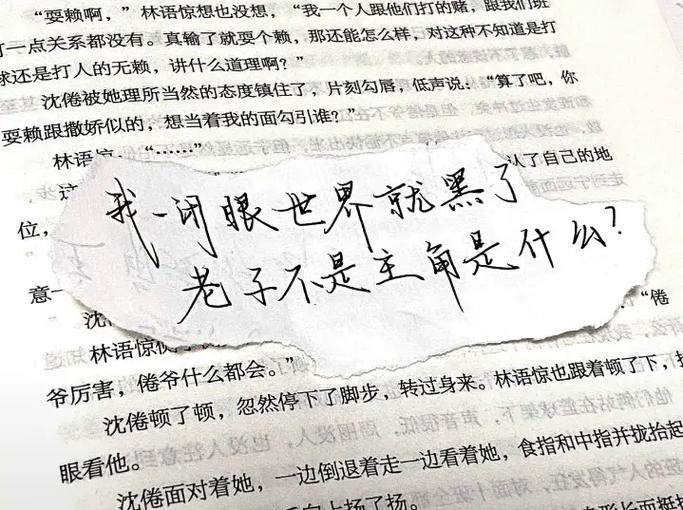 “耍赖啊，”林语惊想也没想，“我一个人跟他们打的赌，跟我们班
一点关系都没有。真输了就耍个赖，那还能怎么样，对这种不知道是打
球还是打人的无赖，讲什么道理啊？”
沈倦被她理所当然的态度镇住了，片刻勾唇，低声说：“算了吧，你
耍赖跟撒娇似的，想当着我的面勾引谁？”
林语惊：“……”
认了自己的地
位，
我一闭眼世界就黑了
老子不是主角是什么？
意一
沈
“倦
林语惊
爷厉害，倦爷什么都会。”
沈倦顿了顿，忽然停下了脚步，转过身来。林语惊也跟着顿了下，
眼看他。
沈倦面对着她，一边倒退着走一边看着她，食指和中指并拢抬起
向上扬了扬。